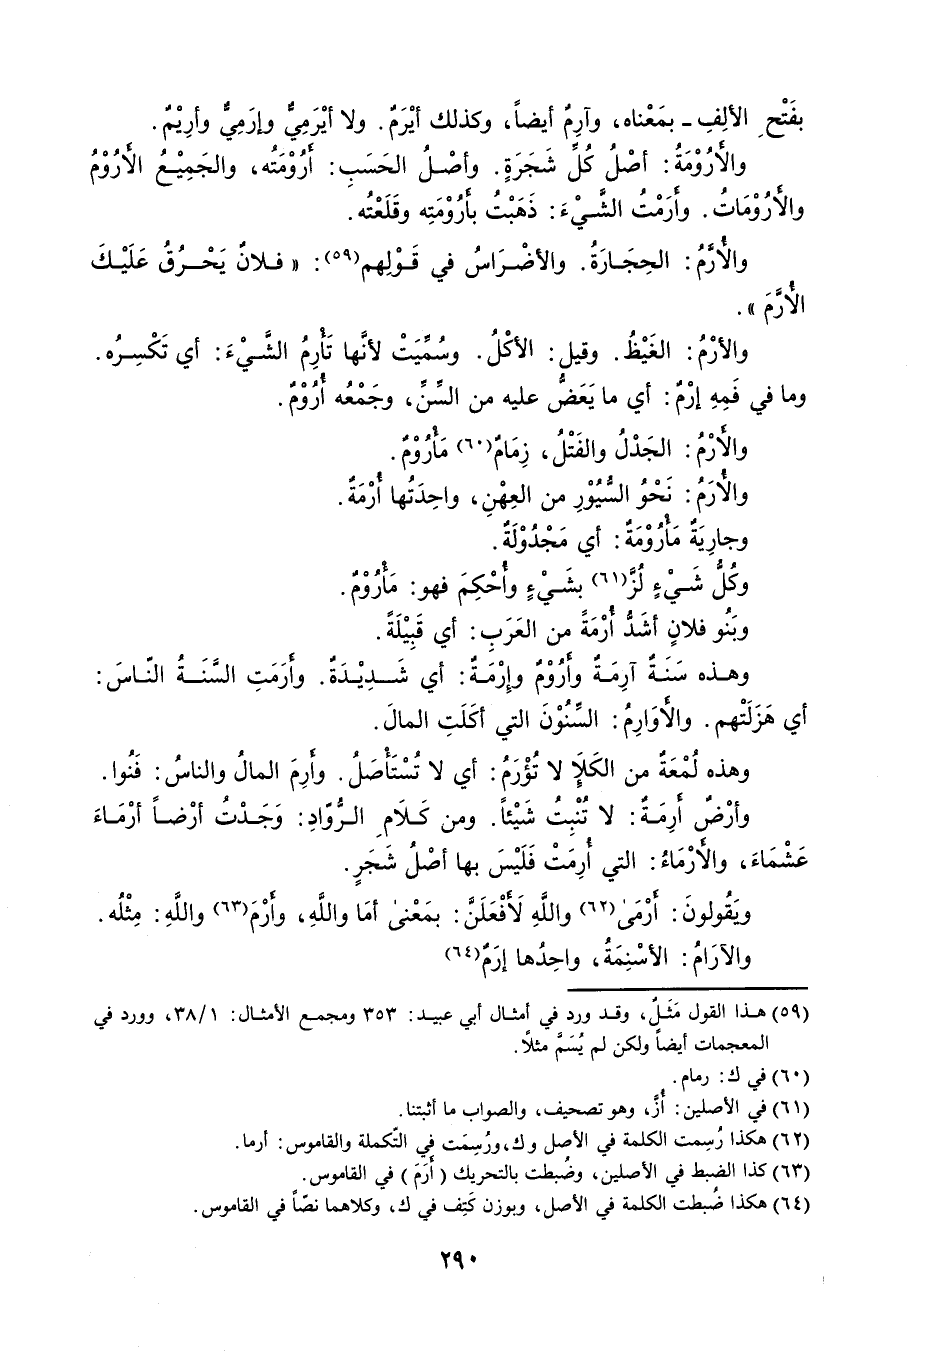 بفَتْحِ الألِفِ ـ بمَعْناه، وآرِمٌ أيضاً، وكذلك أيْرَمٌ. ولا أيْرَمِيٌّ وإرَمِيٌّ وأرِيْمٌ.
والأَرُوْمَةُ: أصْلُ كُلِّ شَجَرَةٍ. وأصْلُ الحَسَبِ: أَرُوْمَتُه، والجَمِيْعُ الأَرُوْمُ
والأَرُوْمَاتُ. وأَرَمْتُ الشَّيْءَ: ذَهَبْتُ بأَرُوْمَتِه وقَلَعْتُه.
والأُرَّمُ: الحِجَارَةُ. والأضْرَاسُ في قَوْلِهم(٥٩): « فلانٌ يَحْرُقُ عَلَيْكَ
الأُرَّمَ ».
والأرْمُ: الغَيْظُ. وقيل: الأكْلُ. وسُمِّيَتْ لأنَّها تَأْرِمُ الشَّيْءَ: أي تَكْسِرُه.
وما في فَمِهِ إرْمٌ: أي ما يَعَضُّ عليه من السِّنِّ، وجَمْعُه أُرُوْمٌ.
والأَرْمُ: الجَدْلُ والفَتْلُ، زِمَامٌ(٦٠) مَأْرُوْمٌ.
والأُرَمُ: نَحْوُ السُّيُوْرِ من العِهْنِ، واحِدَتُها أُرْمَةٌ.
وجارِيَةٌ مَأْرُوْمَةٌ: أي مَجْدُوْلَةٌ.
وكُلُّ شَيْءٍ لُزَّ(٦١) بشَيْءٍ وأُحْكِمَ فهو: مَأْرُوْمٌ.
وبَنُو فلانٍ أشَدُّ أُرْمَةً من العَرَبِ: أي قَبِيْلَةً.
وهذه سَنَةٌ آرِمَةٌ وأَرُوْمٌ وإرْمَةٌ: أي شَدِيْدَةٌ. وأَرَمَتِ السَّنَةُ النّاسَ:
أي هَزَلَتْهم. والأَوَارِمُ: السِّنُوْنَ التي أكَلَتِ المالَ.
وهذه لُمْعَةٌ من الكَلَإِ لا تُؤْرَمُ: أي لا تُسْتَأْصَلُ. وأَرِمَ المالُ والناسُ: فَنُوا.
وأرْضٌ أَرِمَةٌ: لا تُنْبِتُ شَيْئاً. ومن كَلَامِ الرُّوّادِ: وَجَدْتُ أرْضاً أرْمَاءَ
عَشْمَاءَ، والأَرْمَاءُ: التي أُرِمَتْ فَلَيْسَ بها أصْلُ شَجَرٍ.
ويَقُولونَ: أَرْمَىٰ(٦٢) واللَّهِ لَأَفْعَلَنَّ: بمَعْنىٰ أمَا واللَّهِ، وأَرْمَ(٦٣) واللَّهِ: مِثْلُه.
والآرَامُ: الأسْنِمَةُ، واحِدُها إرَمٌ(٦٤)
(٥٩) هذا القول مَثَلٌ، وقد ورد في أمثال أبي عبيد: ٣٥٣ ومجمع الأمثال: ٣٨/١، وورد في
المعجمات أيضاً ولكن لم يُسَمَّ مثلاً.
(٦٠) في ك: رمام.
(٦١) في الأصلين: أُزَّ، وهو تصحيف، والصواب ما أثبتنا.
(٦٢) هكذا رُسِمت الكلمة في الأصل وك، ورُسِمَت في التّكملة والقاموس: أرما.
(٦٣) كذا الضبط في الأصلين، وضُبطت بالتحريك ( أَرَمَ ) في القاموس.
(٦٤) هكذا ضُبطت الكلمة في الأصل، وبوزن كَتِف في ك، وكلاهما نصّاً في القاموس.
٢٩٠